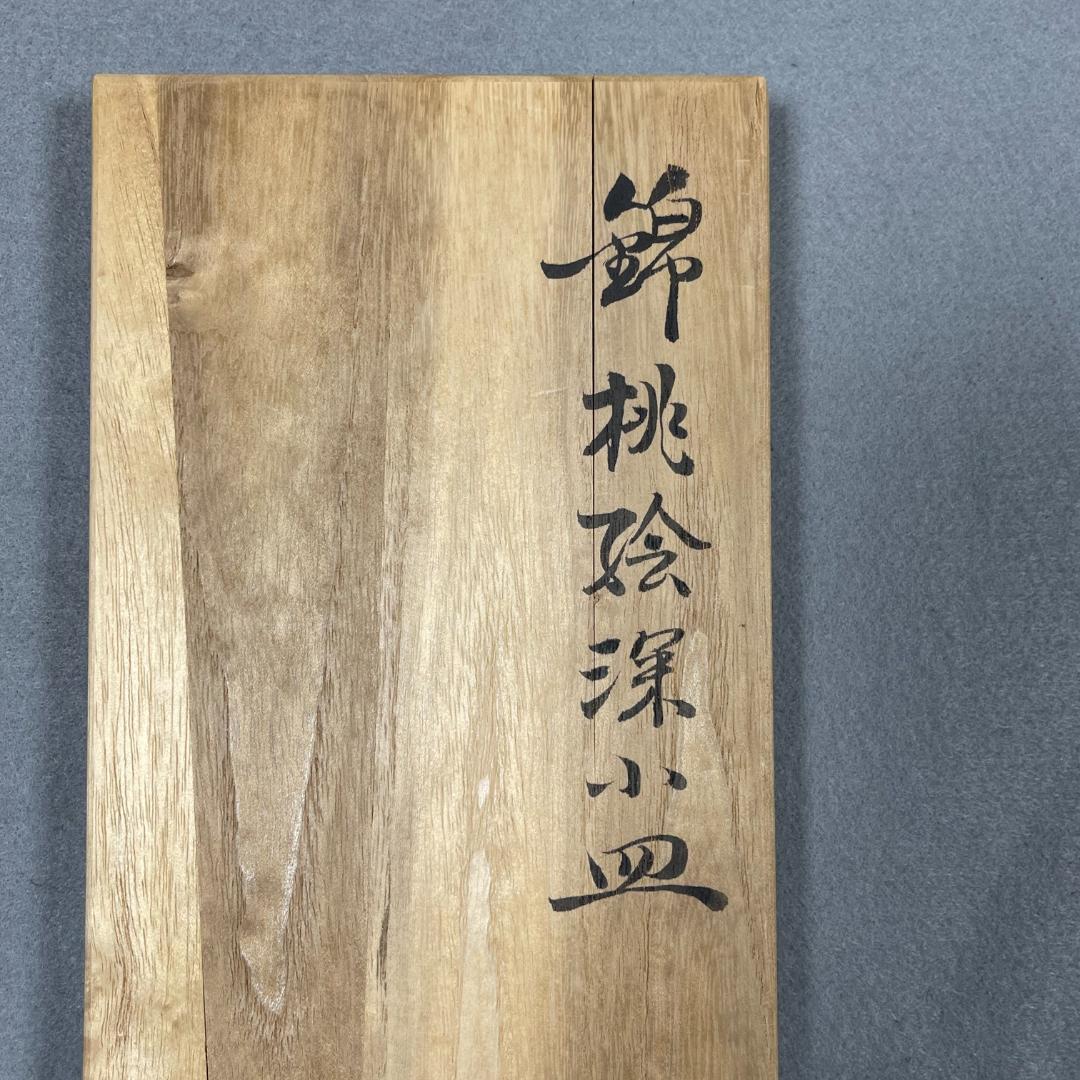 錦桃絵深小皿